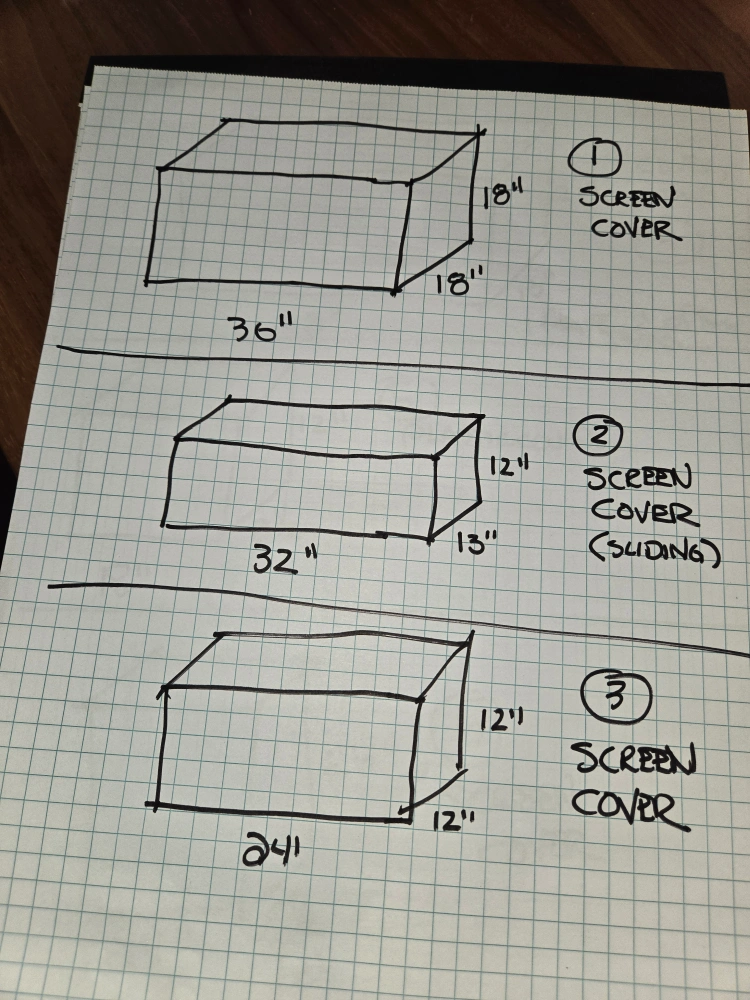 18"
18"
36"
1
SCREEN
COVER
12"
13"
32"
2
SCREEN
COVER
(SLIDING)
12"
12"
24"
3
SCREEN
COVER